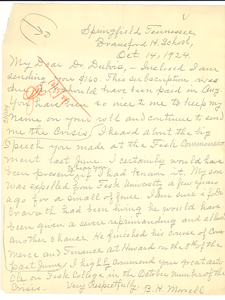 Springfield Tennessee
Bransford H. School,
Oct 14, 1924.
My Dear Dr Dubois, - Inclosed I am
sending you $1.50. This subscription was
due should have been paid in Aug
You have been so nice to me to keep my
name on your roll and continue to send
me the Crisis. I heard about the big
speech you made at the Fisk Commence
ment last June. I certainly would have
been present if I had known it. My son
was expelled from Fisk University a few years
ago for a small offense.
had been living he would have
been given a severe reprimanding and allowed
another chance. He finished his course of Com
merce and Finance at Howard on the 8th of the
past June. I highly commend your great article
on Fisk College in the October number of the
Crisis. Very Respectfully, B. H. Morrell